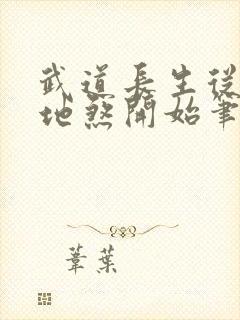 武道長生從
地煞開始筆
葦葉